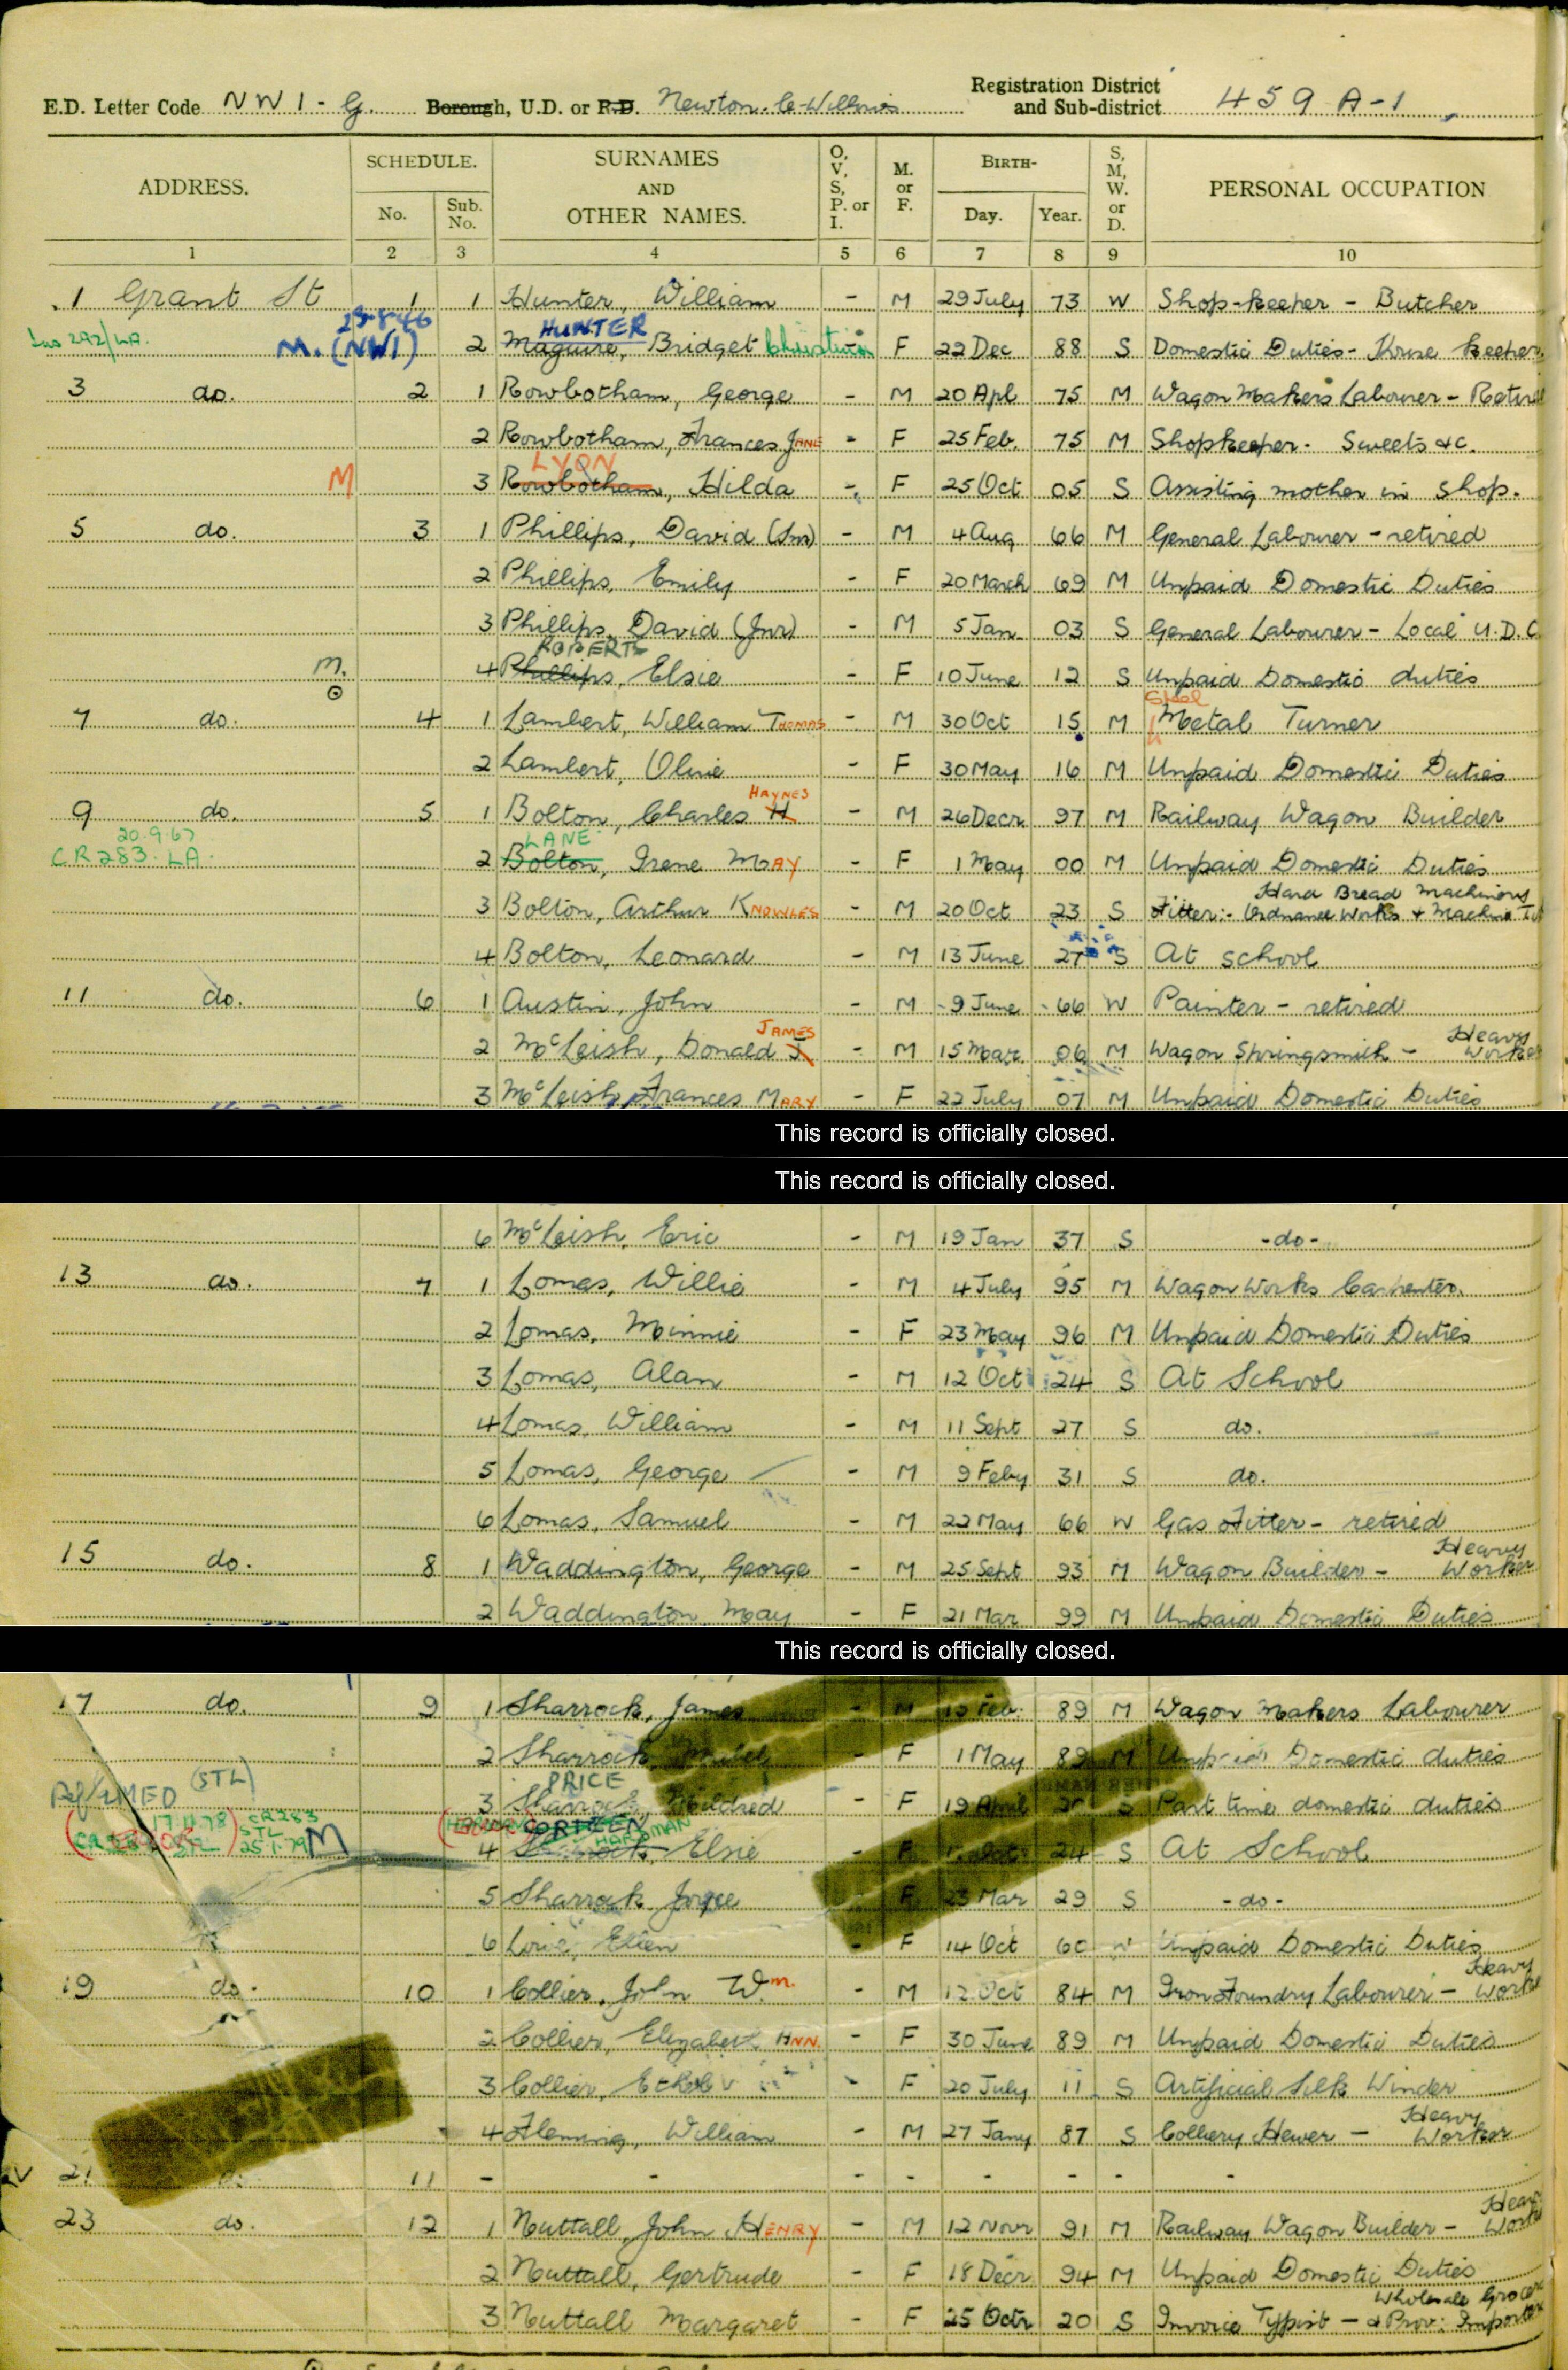 E.D. Letter Code NW1 - G. Borough, U.D. or R.D. Newton-le-Willows Registration District and Sub-district 459 A-1
ADDRESS. SCHEDULE. No. Sub. No. SURNAMES AND OTHER NAMES. O, V, S, P. or I. M. or F. BIRTH- Day. Year. S, M, W. or D. PERSONAL OCCUPATION
1 2 3 4 5 6 7 8 9 10
1 Grant St 1 1 Hunter, William - M 29 July 73 W Shop-keeper - Butcher
29-8-46 HUNTER
292/LA. M. (NW1) 2 Maguire, Bridget Christina F 22 Dec 88 S Domestic Duties - House keeper
3 do. 2 1 Rowbotham, George - M 20 Apl 75 M Wagon Makers Labourer - Retired
2 Rowbotham, Frances JANE - F 25 Feb. 75 M Shopkeeper. Sweets &c.
LYON
M 3 Rowbotham, Hilda - F 25 Oct 05 S Assisting mother in shop.
5 do. 3 1 Phillips, David (Snr) - M 4 Aug 66 M General Labourer - retired
2 Phillips, Emily - F 20 March 69 M Unpaid Domestic Duties
3 Phillips, David (Jnr) - M 5 Jan 03 S General Labourer - Local U.D.C
ROBERTS
M. 4 Phillips, Elsie - F 10 June 12 S Unpaid Domestic duties
Steel
7 do. 4 1 Lambert, William THOMAS - M 30 Oct 15 M Metal Turner
2 Lambert, Olive - F 30 May 16 M Unpaid Domestic Duties
HAYNES
9 do. 5 1 Bolton, Charles H - M 26 Decr 97 M Railway Wagon Builder
20.9.67 LANE
CR283. LA. 2 Bolton, Irene MAY - F 1 May 00 M Unpaid Domestic Duties
Hard Bread Machinery
3 Bolton, Arthur KNOWLES - M 20 Oct 23 S Fitter:- Ordnance Works & Machine
4 Bolton, Leonard - M 13 June 27 S At school
11 do. 6 1 Austin, John - M 9 June 66 W Painter - retired
JAMES
2 McLeish, Donald J - M 15 Mar. 06 M Wagon Springsmith - Heavy Worker
3 McLeish, Frances MARY - F 22 July 07 M Unpaid Domestic Duties
This record is officially closed.
This record is officially closed.
6 McLeish, Eric - M 19 Jan 37 S -do-
13 do. 7 1 Lomas, Willie - M 4 July 95 M Wagon Works Carpenter.
2 Lomas, Minnie - F 23 May 96 M Unpaid Domestic Duties
3 Lomas, Alan - M 12 Oct 24 S At School
4 Lomas, William - M 11 Sept 27 S do.
5 Lomas, George - M 9 Feby 31 S do.
6 Lomas, Samuel - M 22 May 66 W Gas Fitter - retired
15 do. 8 1 Waddington, George - M 25 Sept 93 M Wagon Builder - Heavy Worker
2 Waddington, May - F 21 Mar 99 M Unpaid Domestic Duties
This record is officially closed.
17 do. 9 1 Sharrock, James - M Feb. 89 M Wagon Makers Labourer
2 Sharrock, - F 1 May 89 M Unpaid Domestic duties
(STL) PRICE
3 Sharrock, Mildred - F 19 April S Part time domestic duties
17.11.78 CR283 STL 25.1.79 M CORTEEN HARDMAN
4 Elsie - F 24 S At School
5 Sharrock Joyce F 23 Mar 29 S -do-
6 Lowe, Ellen - F 14 Oct 60 W Unpaid Domestic Duties
19 do. 10 1 Collier, John Wm. - M 12 Oct 84 M Iron Foundry Labourer - Heavy Worker
2 Collier, Elizabeth ANN. - F 30 June 89 M Unpaid Domestic Duties
3 Collier, Ethel V - F 20 July 11 S Artificial Silk Winder
4 Fleming, William - M 27 Jany 87 S Colliery Hewer - Heavy Worker
21 11 - - - - - - - -
23 do. 12 1 Nuttall, John HENRY - M 12 Novr 91 M Railway Wagon Builder - Heavy Worker
2 Nuttall, Gertrude - F 18 Decr 94 M Unpaid Domestic Duties
Wholesale Grocer
3 Nuttall Margaret - F 25 Octr 20 S Invoice Typist - & Prov: Importer